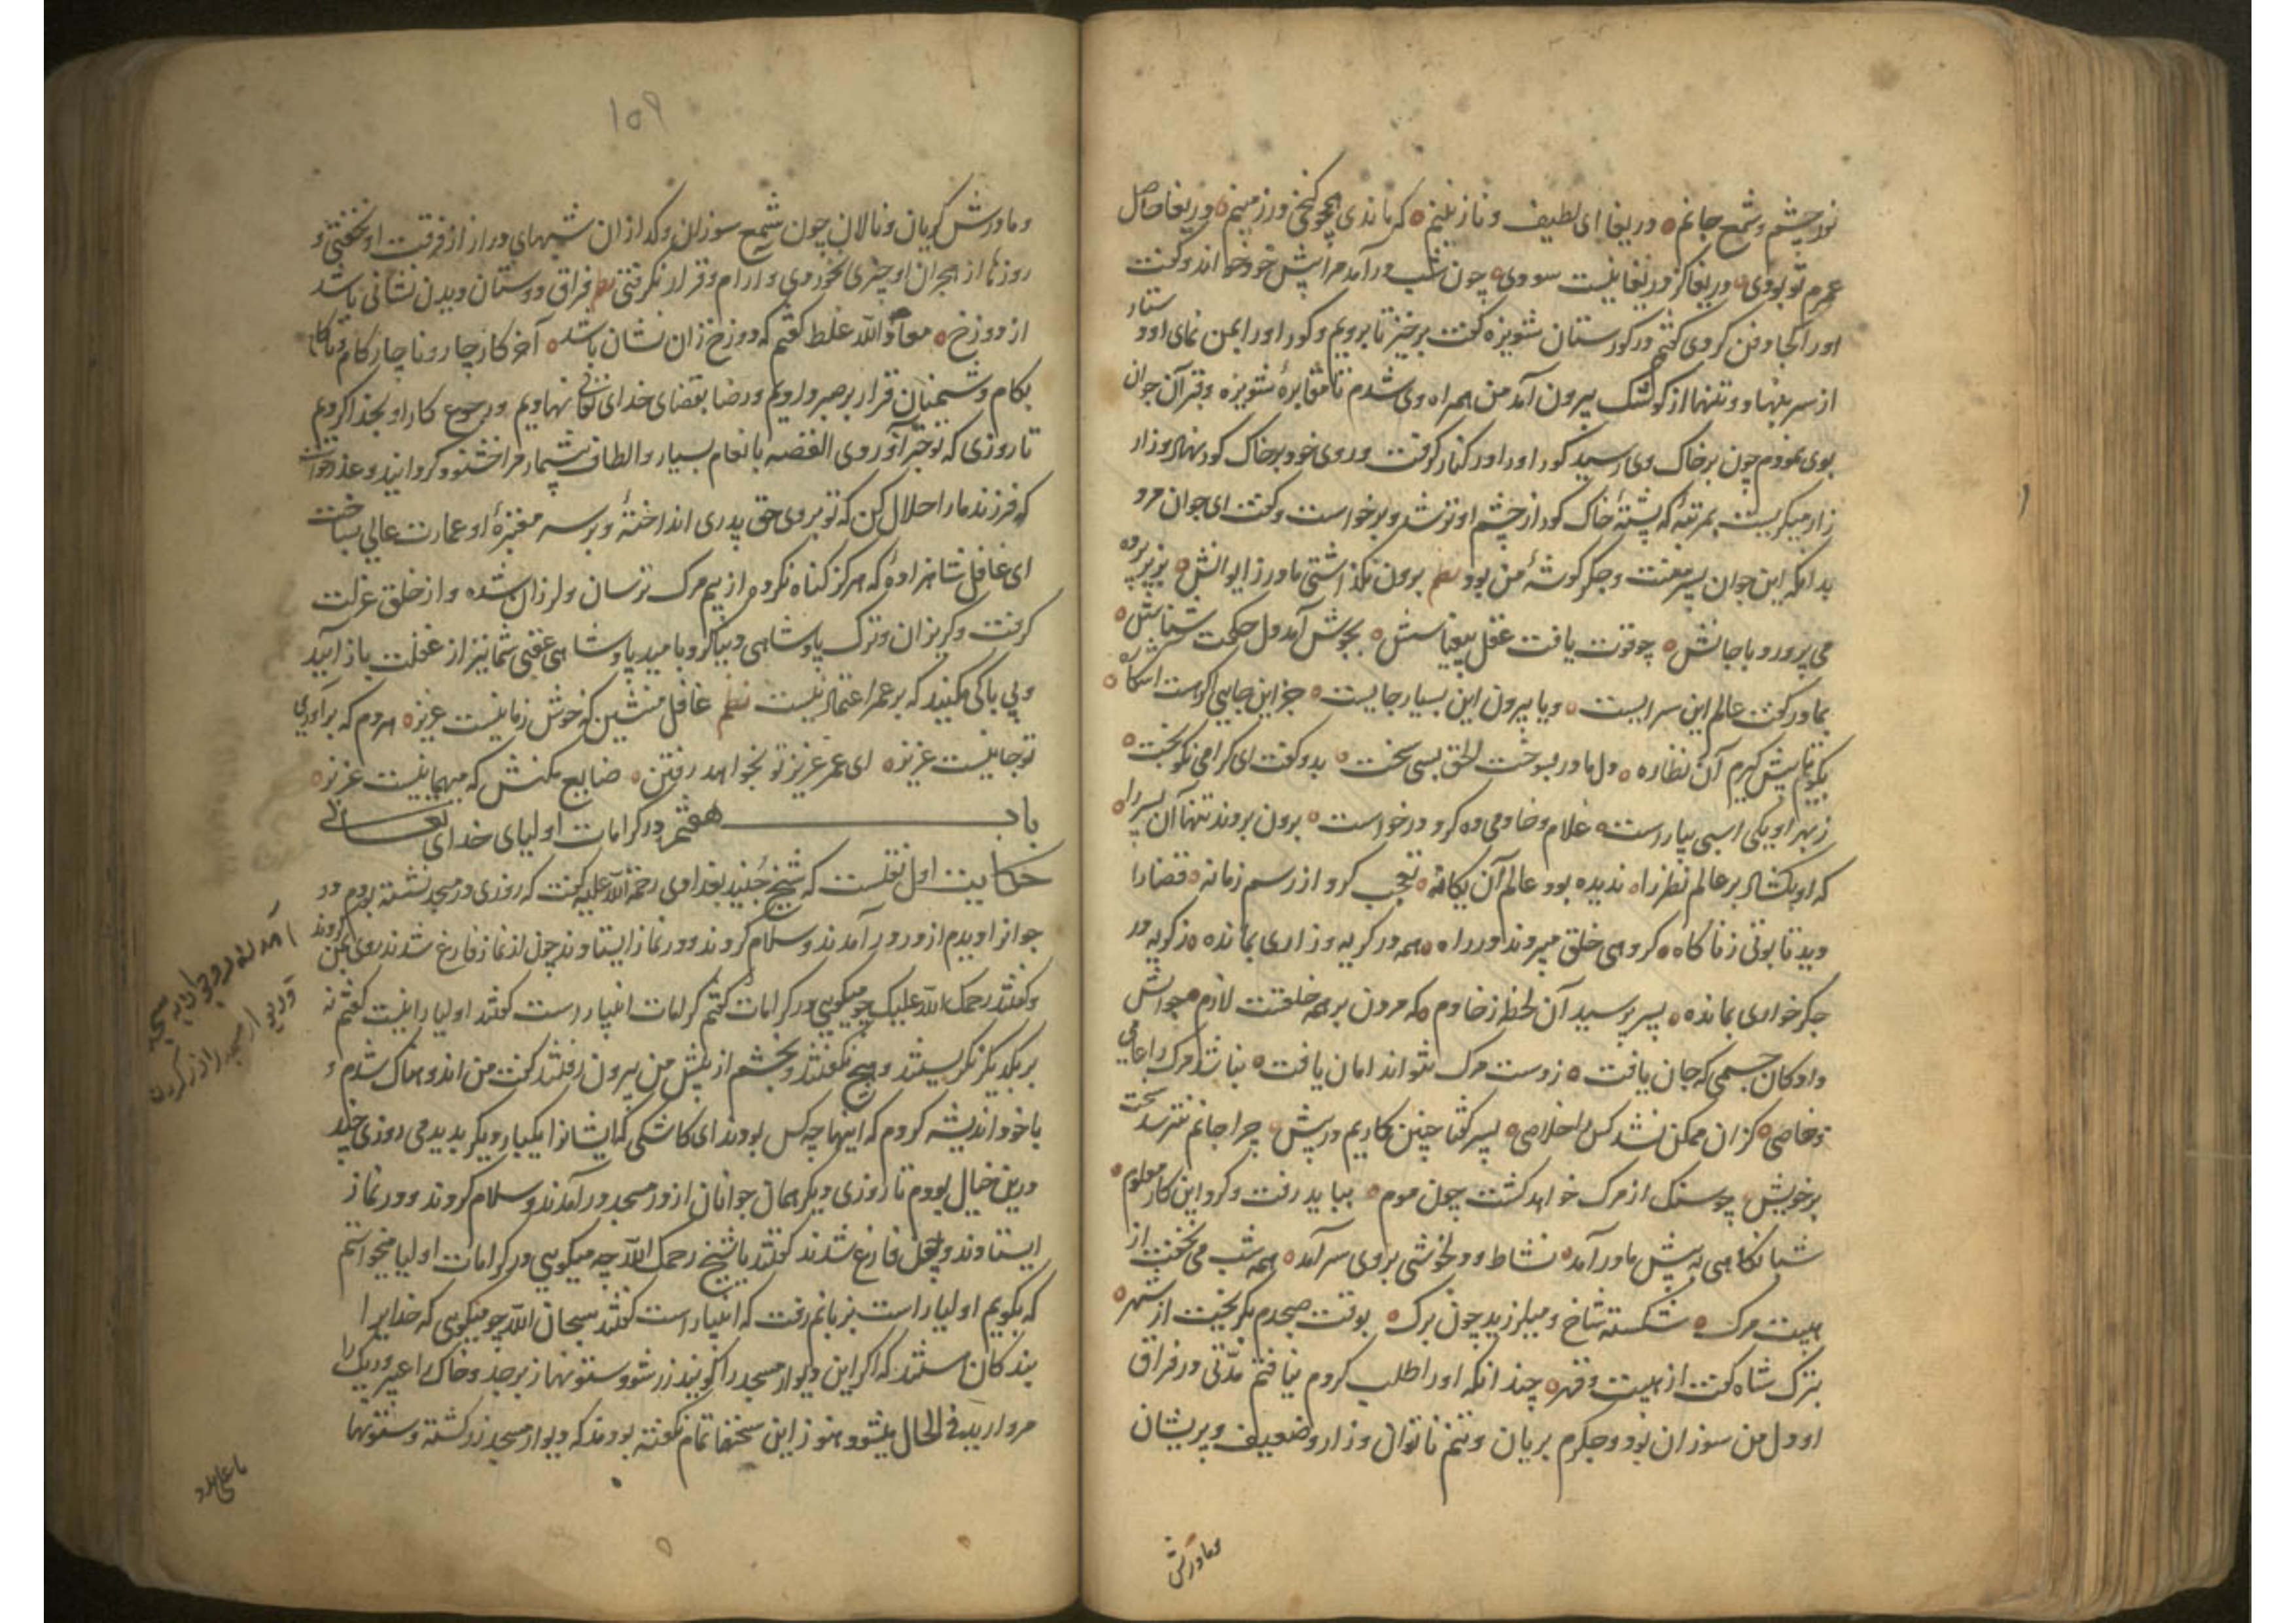 نور چشم و شمع جانم دریغا ای لطیف و نازنینم که ماندی همچو گنجی در زمینم دریغا حاصل
عمرم تو بودی دریغا کز دریغا نیست سودی چون شب درآمد مرا پیش خود خواند و گفت
او را کجا دفن کردی گفتم در گورستان شونیزه گفت برخیز تا برویم و گور او را بمن نمای او دستار
از سر بنهاد و تنها از کوشک بیرون آمد من همراه وی شدم تا مقابرهٔ شونیزه و قبر آن جوان
بوی نمودم چون بر خاک وی رسید گور او را در کنار گرفت و روی خود بر خاک گور نهاد و زار
زار میگریست بمرتبهٔ که پشتهٔ خاک گور از چشم او تر شد و برخواست و گفت ای جوان مرد
بدانکه این جوان پسر منست و جگر گوشهٔ من بود نظم برون نگذاشتی مادر ز ایوانش بزیر پرده
می پرورد با جانش چو قوت یافت عقل بیقیاسش بجوش آمد دل حکمت شناسش
بمادر گفت عالم این سرایست و یا بیرون این بسیار جایست جز این جایی گر است آشکاره
بگو تا پیش گیرم آن نظاره دل مادر بسوخت الحق بسی سخت بدو گفت ای گرامی نکو بخت
ز بهر او یکی اسبی بیاراست غلام و خادمی ده کرد درخواست برون بردند تنها آن پسر را
که او بگشاد بر عالم نظر را ندیده بود عالم آن یگانه تعجب کرد از رسم زمانه قضا را
دید تابوتی ز ناگاه گروهی خلق میبردند در راه همه در گریه و زاری بمانده ز گریه در
جگر خواری بمانده پسر پرسید آن لحظه ز خادم که مردن بر همه خلقست لازم جوابش
داد کان جسمی که جان یافت ز دست مرگ نتواند امان یافت نباشد مرگ را عامی
و خاصی کزان ممکن نشد کس را خلاصی پسر گفتا چنین کاریم در پیش چرا جانم نترسد سخت
بر خویش چو سنگ از مرگ خواهد گشت چون موم بباید رفت و کرد این کار معلوم
شبانگاهی به پیش مادر آمد نشاط و دلخوشی بر وی سر آمد همه شب می نخفت از
هیبت مرگ شکسته شاخ و میلرزید چون برگ بوقت صبحدم بگریخت از شهر
بترک شاه گفت از هیبت و قهر چندانکه او را طلب کردم نیافتم مدتی در فراق
او دل من سوزان بود و جگرم بریان و تنم ناتوان و زار و ضعیف و پریشان
ومادرش
۱۵۹
و مادرش گریان و نالان چون شمع سوزان و گدازان شبهای دراز از فرقت او نخفتی و
روزها از هجران او چیزی نخوردی و آرام و قرار نگرفتی نظم فراق دوستان دیدن نشانی باشد
از دوزخ معاذ الله غلط گفتم که دوزخ زان نشان باشد آخر کار چار و ناچار کام و ناکام
بکام دشمنان قرار بر صبر دادیم و رضا بقضای خدای تعالی نهادیم و رجوع کار او بخدا کردیم
تا روزی که تو خبر آوردی القصه بانعام بسیار و الطاف بیشمار مرا خشنود گردانید و عذر خواست
که فرزند ما را حلال کن که تو بروی حق پدری انداختهٔ و بر سر مقبرهٔ او عمارت عالی بساخت
ای غافل شاهزادهٔ که هرگز گناه نکرده از بیم مرگ ترسان و لرزان شده و از خلق عزلت
گرفت و گریزان و ترک پادشاهی دنیا کرد بامید پادشاهی عقبی شما نیز از غفلت باز آیید
و بی باکی مکنید که بر عمر اعتماد نیست نظم غافل منشین که خوش زمانیست عزیز هر دم که بر آوری
تو جانیست عزیز ای عمر عزیز تو بخواهد رفتن ضایع مکنش که میهمانیست عزیز
باب هفتم در کرامات اولیای خدای تعالی
حکایت اول نقلست که شیخ جنید بغدادی رحمة الله علیه گفت که روزی در مسجد نشسته بودم دو
جوانرا دیدم از در درآمدند و سلام کردند و در نماز ایستادند چون از نماز فارغ شدند روی بمن کردند
و گفتند رحمک الله علیک چو میگویی در کرامات گفتم کرامات انبیا راست گفتند اولیا را نیست گفتم نه
بر یکدیگر نگریستند و هیچ نگفتند و بخشم از پیش من بیرون رفتند گفت من اندوهناک شدم و
با خود اندیشه کردم که اینها چه کس بودند ای کاشکی که ایشانرا یکبار دیگر بدیدمی روزی چند
درین خیال بودم تا روزی دیگر همان جوانان از در مسجد درآمدند و سلام کردند و در نماز
ایستادند و چون فارغ شدند گفتند یا شیخ رحمک الله چه میگویی در کرامات اولیا میخواستم
که بگویم اولیا راست بزبانم رفت که انبیا راست گفتند سبحان الله چو میگویی که خدایرا
بندگان هستند که اگر این دیوار مسجد را گویند زر شو و ستونها زبرجد و خاک را عبیر و ریگ را
مروارید فی الحال بشود و هنوز این سخنها تمام نگفته بودند که دیوار مسجد زر گشته و ستونها
آمدن دو جوان به مسجد
و دیوار مسجد را زر کردن